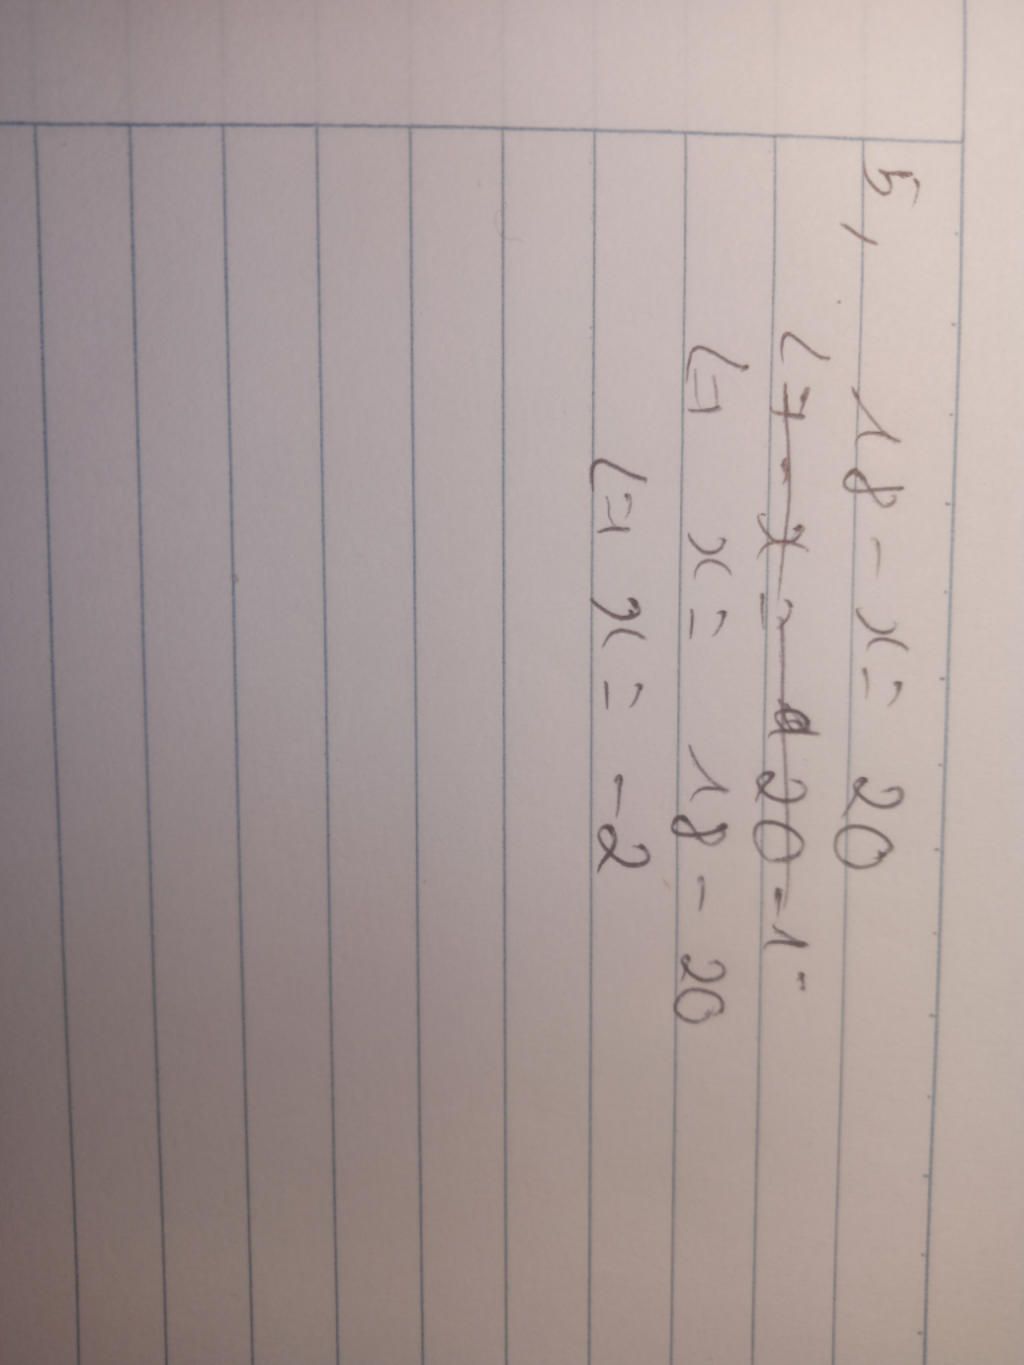 5, 18 - x = 20
<=> - x = 20 - 1
<=> x = 18 - 20
<=> x = -2